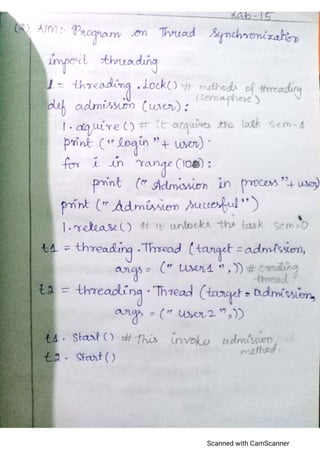 Lab-15
(2) AIM:- Program on Thread Synchronization
import threading
l = threading.Lock() # methods of threading
(semaphore)
def admission (user):
l.aquire() # it acquires the task sem-1
print ("login" + user)
for i in range(100):
print ("Admission in process" + user)
print ("Admission succesful")
l.release() # it unlocks the task sem=0
t1 = threading.Thread (target = admission,
args = ("user1",)) # creating
thread
t2 = threading.Thread (target = admission,
args = ("user2",))
t1. Start() # This invokes admission
method.
t2. Start()
Scanned with CamScanner